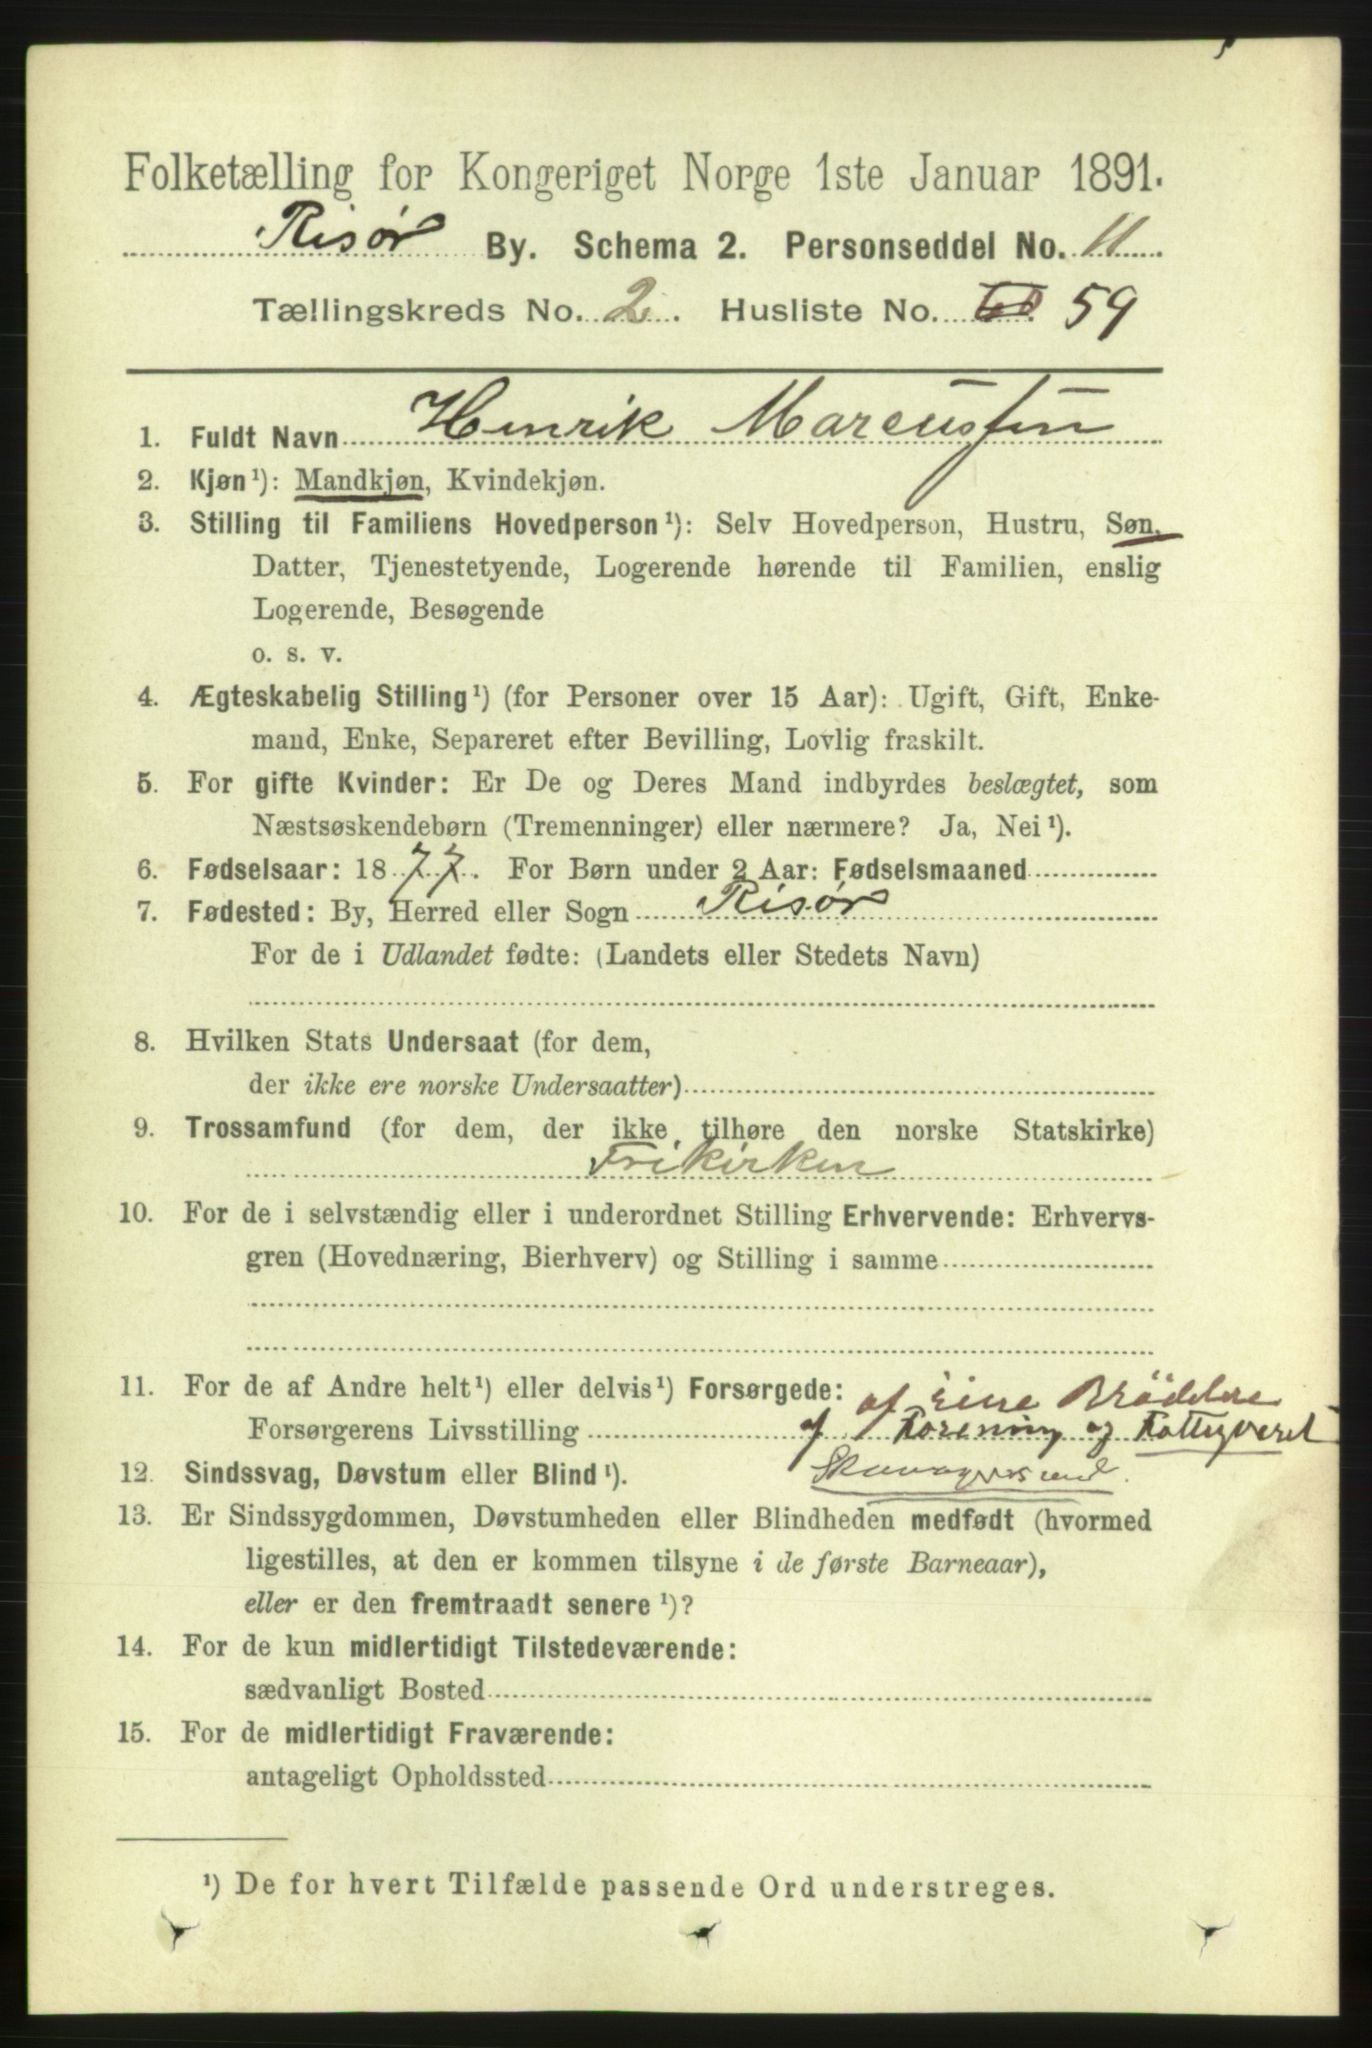 Folketælling for Kongeriget Norge 1ste Januar 1891.
Risør By. Schema 2. Personseddel No. 11
Tællingskreds No. 2. Husliste No. 60 59
1. Fuldt Navn Henrik Marcussen
2. Kjøn¹): Mandkjøn, Kvindekjøn.
3. Stilling til Familiens Hovedperson¹): Selv Hovedperson, Hustru, Søn,
Datter, Tjenestetyende, Logerende hørende til Familien, enslig
Logerende, Besøgende
o. s. v.
4. Ægteskabelig Stilling¹) (for Personer over 15 Aar): Ugift, Gift, Enke-
mand, Enke, Separeret efter Bevilling, Lovlig fraskilt.
5. For gifte Kvinder: Er De og Deres Mand indbyrdes beslægtet, som
Næstsøskendebørn (Tremenninger) eller nærmere? Ja, Nei¹).
6. Fødselsaar: 1877. For Børn under 2 Aar: Fødselsmaaned
7. Fødested: By, Herred eller Sogn Risør
For de i Udlandet fødte: (Landets eller Stedets Navn)
8. Hvilken Stats Undersaat (for dem,
der ikke ere norske Undersaatter)
9. Trossamfund (for dem, der ikke tilhøre den norske Statskirke)
Frikirken
10. For de i selvstændig eller i underordnet Stilling Erhvervende: Erhvervs-
gren (Hovednæring, Bierhverv) og Stilling i samme
11. For de af Andre helt¹) eller delvis¹) Forsørgede: af sine Brödre
Forsørgerens Livsstilling af Forening og Fattigvæsed
12. Sindssvag, Døvstum eller Blind¹).
13. Er Sindssygdommen, Døvstumheden eller Blindheden medfødt (hvormed
ligestilles, at den er kommen tilsyne i de første Barneaar),
eller er den fremtraadt senere¹)?
14. For de kun midlertidigt Tilstedeværende:
sædvanligt Bosted
15. For de midlertidigt Fraværende:
antageligt Opholdssted
¹) De for hvert Tilfælde passende Ord understreges.